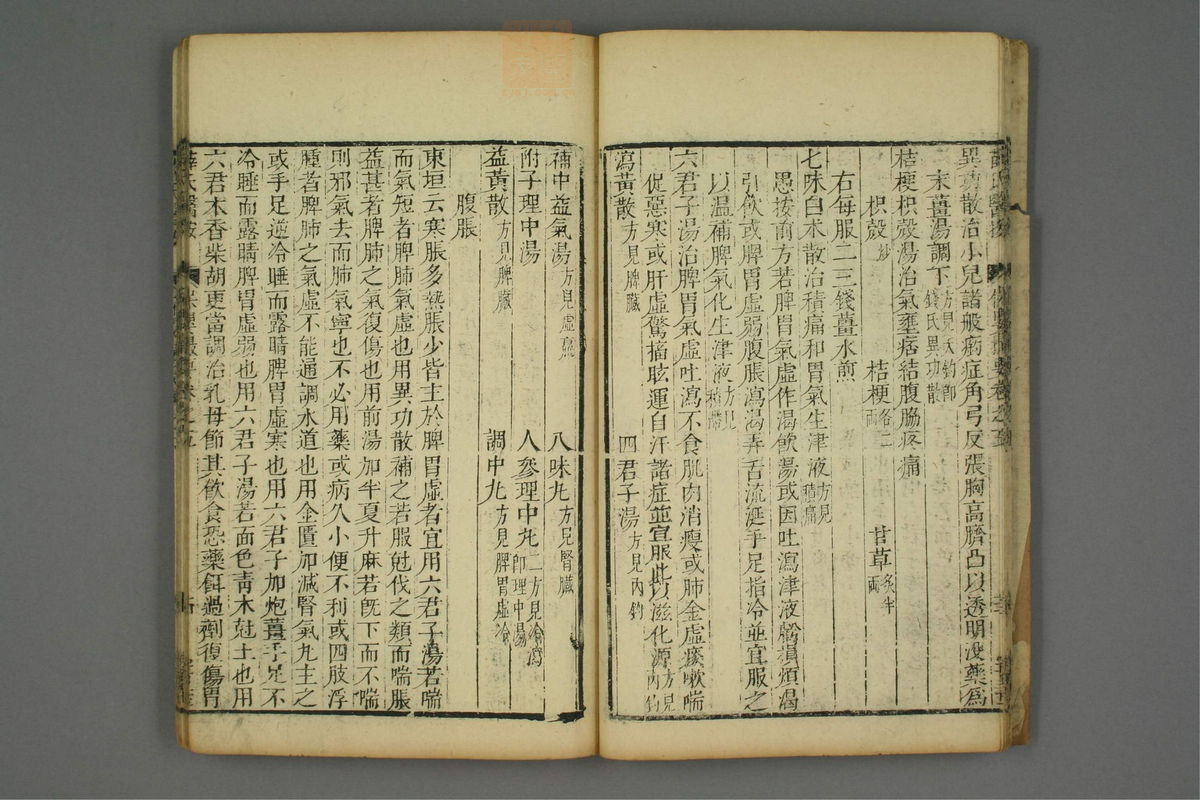 異功散治小兒諸般癇症角弓反張胸高臍凸以透明沒藥爲
末薑湯調下方見天釣卽錢氏異功散
桔梗枳殼湯治氣壅痞結腹脇疼痛
枳殼炒 桔梗各二兩 甘草炙半兩
右每服二三錢薑水煎
七味白术散治積痛和胃氣生津液方見積痛
愚按前方若脾胃氣虛作渴飮湯或因吐瀉津液虧損煩渴
引飮或脾胃虛弱腹脹瀉渴弄舌流涎手足指冷並宜服之
以溫補脾氣化生津液方見積滯
六君子湯治脾胃氣虛吐瀉不食肌肉消瘦或肺金虛痰嗽喘
促惡寒或肝虛驚搐眩運自汗諸症並宜服此以滋化源方見內釣
瀉黃散方見脾臟 四君子湯方見內釣
補中益氣湯方見虛羸 八味丸方見腎臟
附子理中湯 人參理中丸二方見冷瀉卽理中湯
益黃散方見脾臟 調中丸方見脾胃虛冷
腹脹
東垣云寒脹多熱脹少皆主於脾胃虛者宜用六君子湯若喘
而氣短者脾肺氣虛也用異功散補之若服尅伐之類而喘脹
益甚者脾肺之氣復傷也用前湯加半夏升麻若旣下而不喘
則邪氣去而肺氣寧也不必用藥或病久小便不利或四肢浮
腫者脾肺之氣虛不能通調水道也用金匱加減腎氣丸主之
或手足逆冷睡而露睛脾胃虛寒也用六君子加炮薑手足不
冷睡而露睛脾胃虛弱也用六君子湯若面色靑木尅土也用
六君木香柴胡更當調治乳母節其飮食恐藥餌過劑復傷胃
薛氏醫按 保嬰撮要卷之五